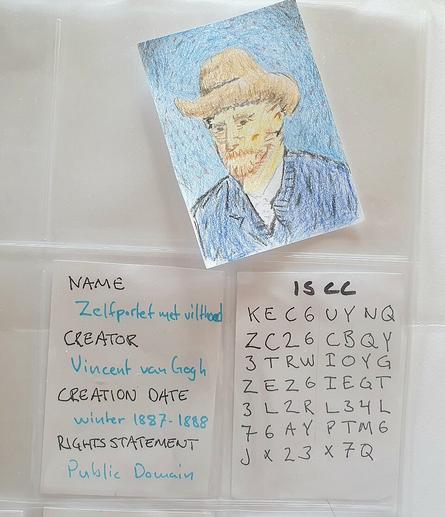 NAME
Zelfportet met vilthoed
CREATOR
Vincent van Gogh
CREATION DATE
winter 1887-1888
RIGHTS STATEMENT
Public Domain
ISCC
KEC6 UYNQ
ZC26 CBQY
3TRW IOYG
ZEZ6 IEGT
3L2R L34L
76AY PTM6
JX23 X7Q